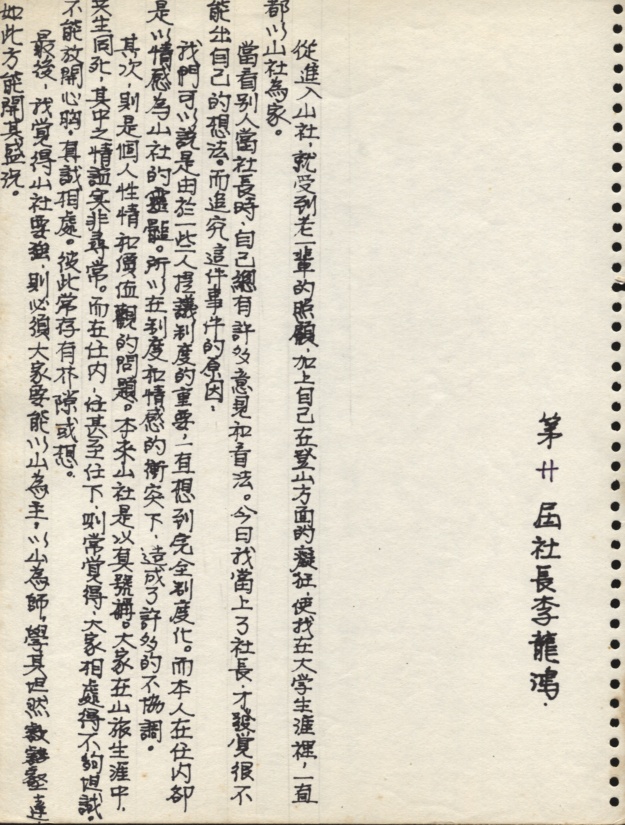 第廿屆社長李龍鴻.
從進入山社，就受到老一輩的照顧，加上自己在登山方面的癡狂，使我在大学生涯裡，一直
都以山社為家。
當看別人當社長時，自己總有許多意見和看法。今日我當上了社長，才發覺很不
能出自己的想法。而追究這件事件的原因，
我們可以說是由於一些人提議制度的重要，一直想到完全制度化。而本人在任內卻
是以情感為山社的靈體。所以在制度和情感的衝突下，造成了許多的不協調。
其次，則是個人性情和價值觀的問題。本來山社是以真 。大家在山旅生涯中，
共生同死，其中之情誼实非尋常。而在任內，任其至任下，則常覺得，大家相處得不夠坦誠。
不能放開心胸，真誠相處。彼此常存有林隙或想。
最後，我覺得山社要強，則必須大家要能以山為主，以山為師，學其坦然 達
如此方能開其盛況。